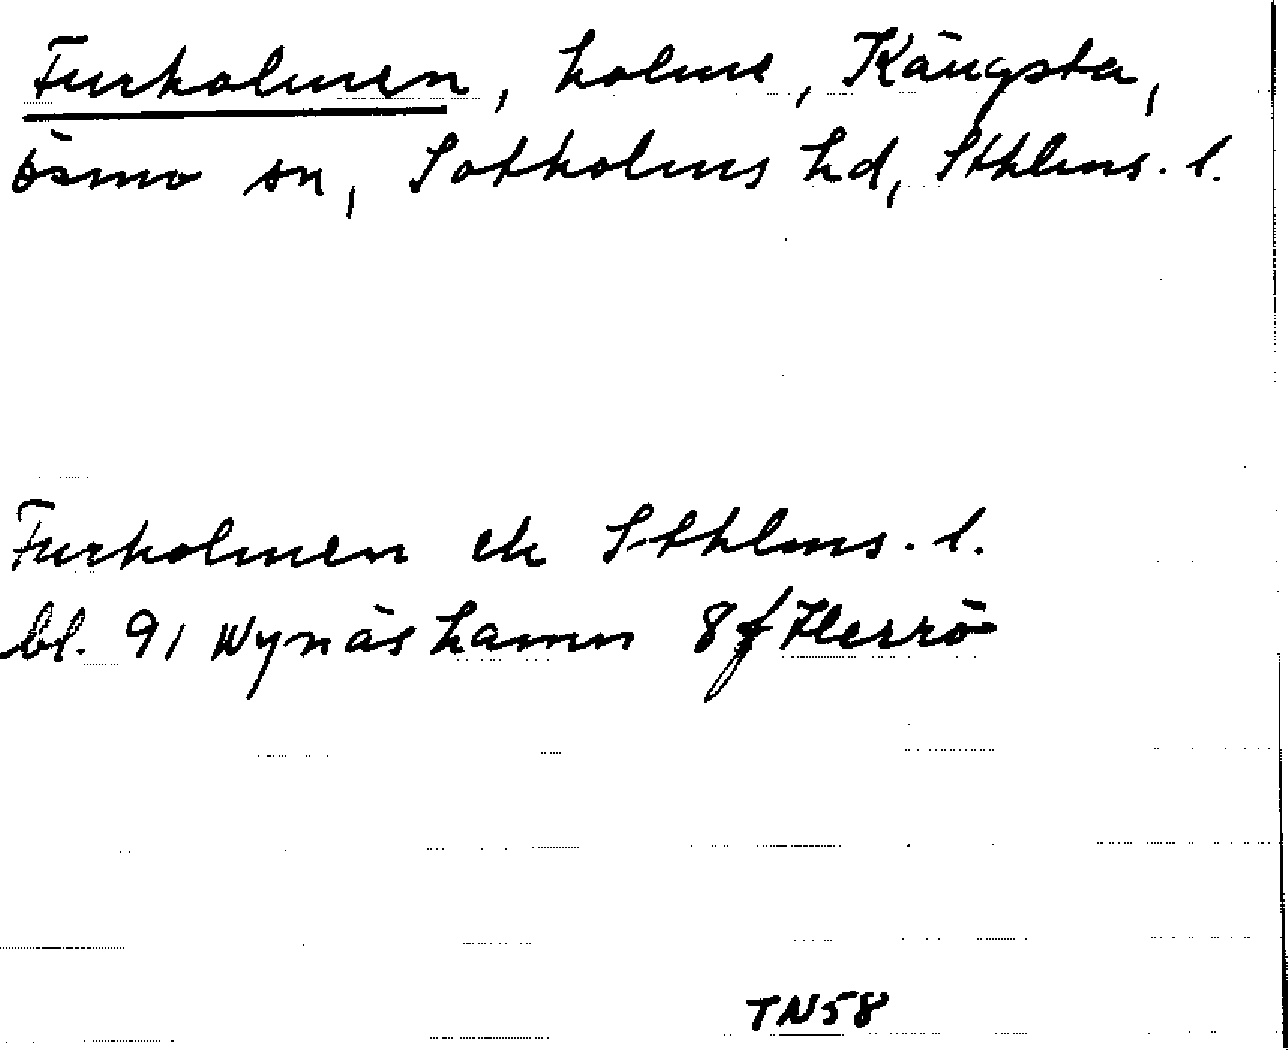 Furholmen, holme, Kängsta,
Ösmo sn, Sotholms hd, Sthlms. l.
Furholmen ek Sthlms. l.
bl. 91 Nynäshamn 8f Herrö
TN58